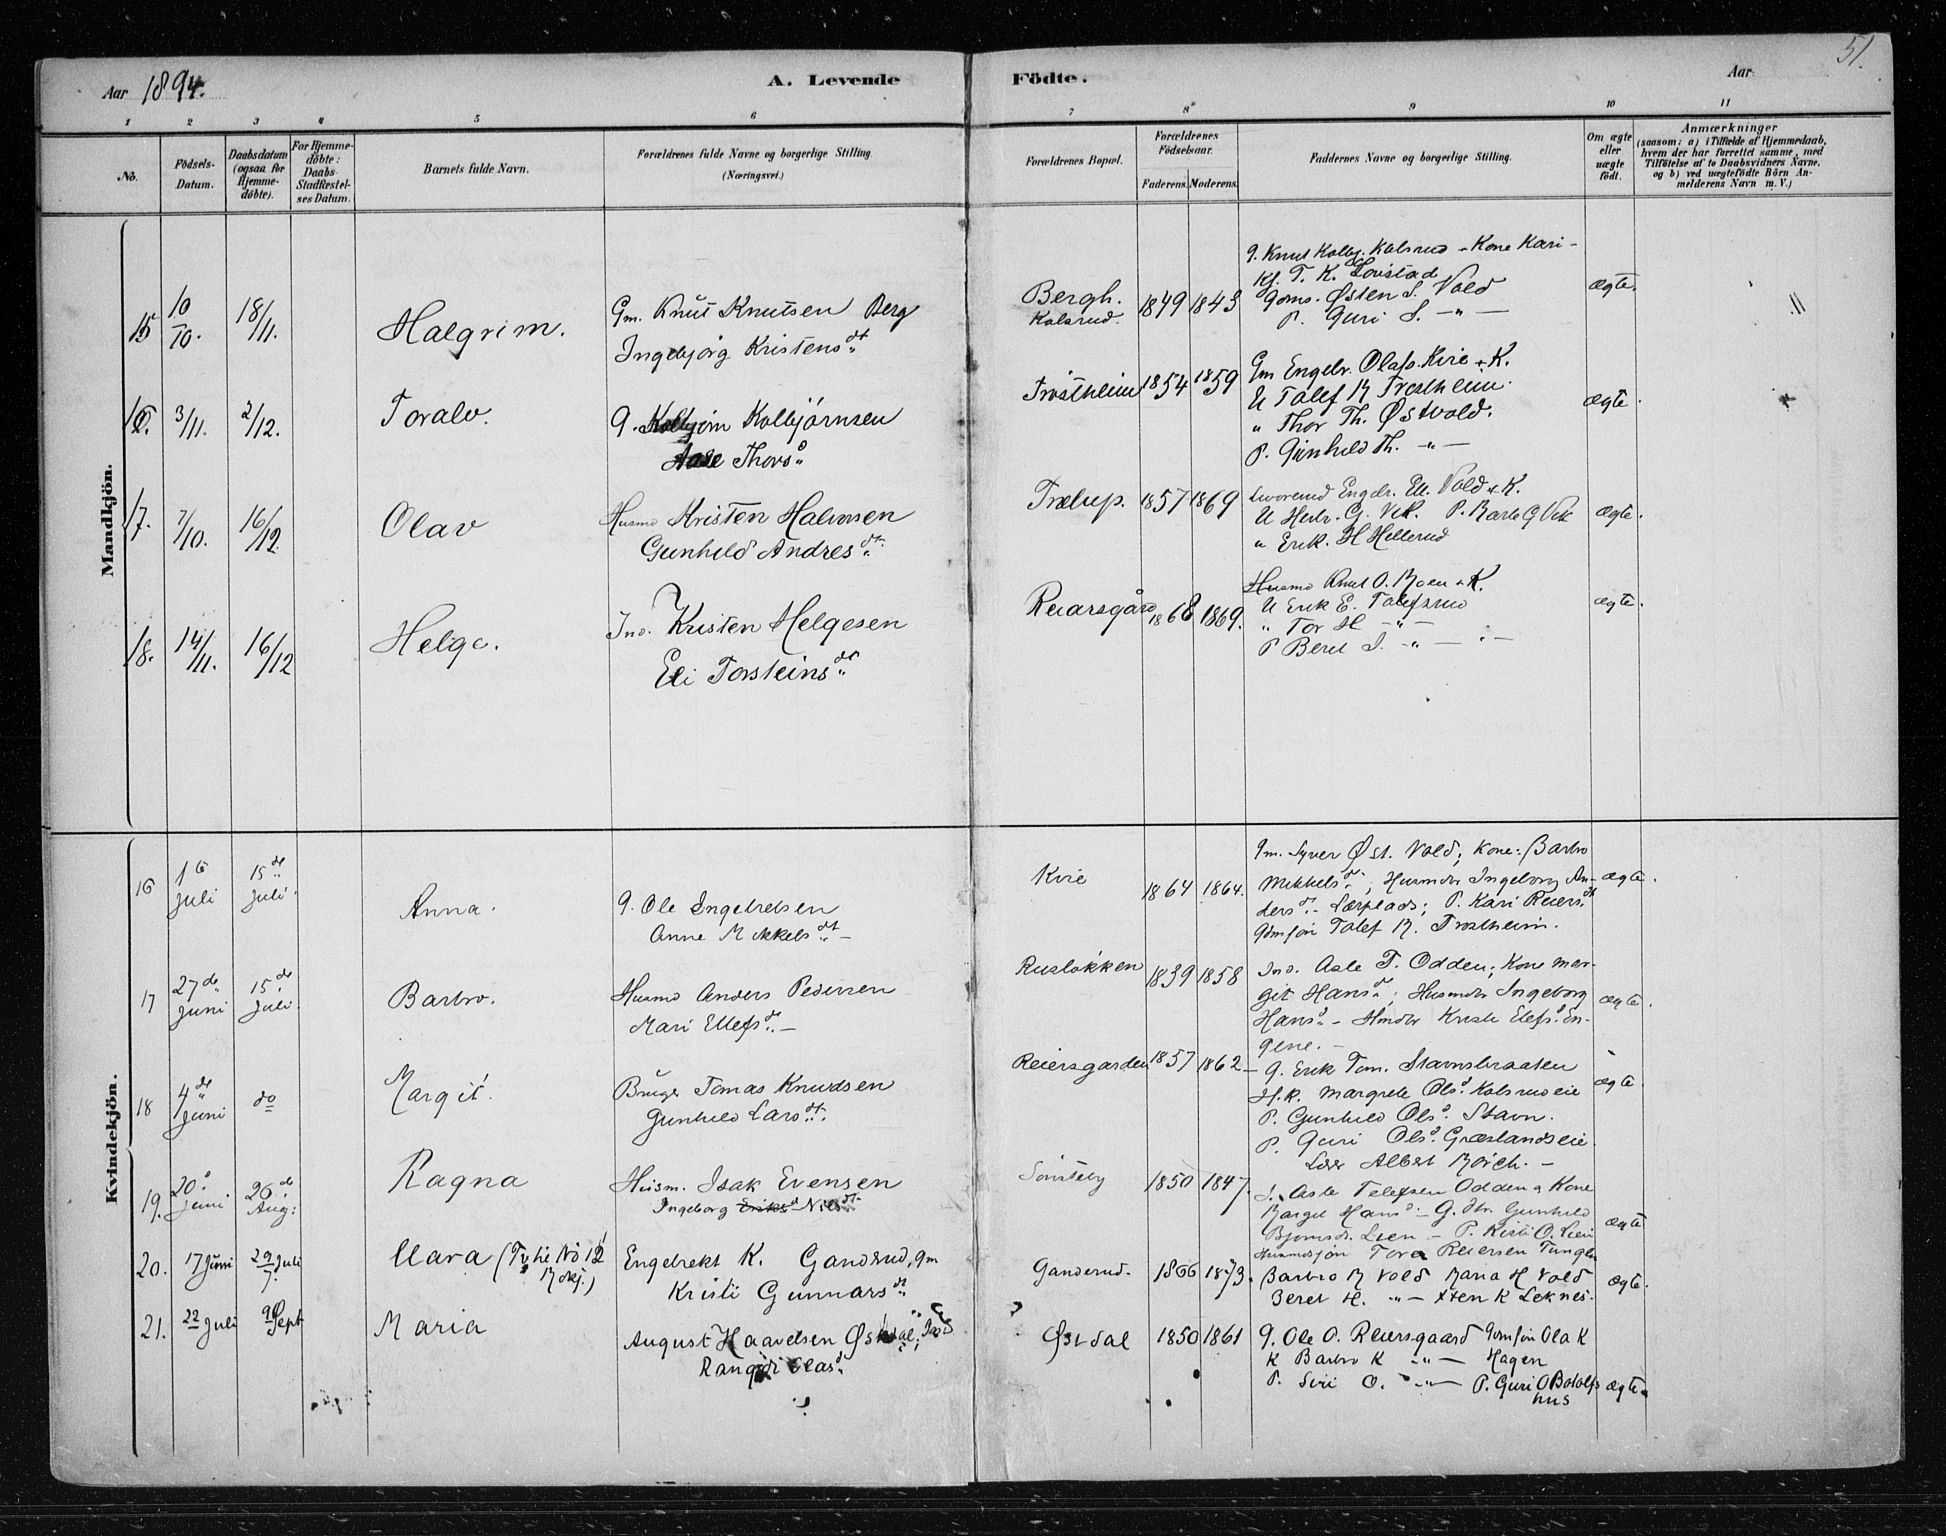 51.
Aar 1894.
A. Levende Födte.
Aar
1 2 3 4 5 6 7 8 9 10 11
No.
Födsels-Datum.
Daabsdatum (ogsaa for Hjemme-döbte).
For Hjemme-döbte: Daabs-Stadfæstel-ses Datum.
Barnets fulde Navn.
Forældrenes fulde Navne og borgerlige Stilling.
(Næringsvei.)
Forældrenes Bopæl.
Forældrenes Födselsaar.
Faderens. Moderens.
Faddernes Navne og borgerlige Stilling.
Om ægte eller uægte födt.
Anmærkninger
(saasom: a) i Tilfælde af Hjemmedaab,
hvem der har forrettet samme, med
Tilföielse af to Daabsvidners Navne,
og b) ved uægtefödte Börn An-
melderens Navn m. V.)
Mandkjön.
15 10/10. 18/11. Halgrim. Gm. Knut Knutsen Berg
Ingebjörg Kristensdt
Bergh. Kolsrud. 1849 1843
g. Knut Kolbj. Kolsrud - Kone Kari -
Kj. T. K. Lovstad
Gdms. Østen S. Vold
P. Guri S. -"-
ægte.
16. 3/11. 2/12. Toralv. G. Kolbjörn Kolbjörnsen
Aase Thorsd
Trostheim 1854 1859
Gm Engebr. Olafs. Kvie + K.
U Tolef R Trostheim.
" Thor Th. Østvold.
P. Gunhild Th. -"-
ægte.
17. 7/10. 16/12. Olav Husmd Kristen Halvorsen
Gunhild Andresdt.
Trælup. 1857 1869
Engebr. El. Vold + K.
U Herbr. G. Vik. P. Barbo G Vik
" Erik. H Hellerud
ægte.
18. 14/11. 16/12 Helge. Ind. Kristen Helgesen
Eli Torsteinsdt
Reiarsgård 1868 1869.
Husmd Knut O. Moen + K.
U Erik E. Tolefsrud
" Tor H -"-
P Beret S. -"-
ægte.
Kvindekjön.
16 16 juli 15de juli. Anna. G. Ole Engebretsen
Anne Mikkelsdt -
Kvie 1864 1864.
Gm. Syver Øst. Vold; Kone: Barbro
Mikkelsd.; Husmdr Ingeborg An-
dersd. - Lærplads; P. Kari Reiersdt
Gdmsøn Tolef R. Trostheim.
ægte.
17 27de juni 15de juli. Barbro. Husmd Anders Pedersen
Mari Ellefsd. -
Rusløkken 1839 1858
Ind. Asle T. Odden; Kone Mar-
git Hansd.; Husmdr Ingeborg
Hansd. - Hmdtr Kristi Elefsd. En-
gene. -
ægte.
18 4de juni do Margit. Bruger Tomas Knudsen
Gunhild Larsdt.
Reiersgarden 1857 1862
G. Erik Tom. Stavnsbraaten
H.k. Margrete Olsd. Kolsrudeie
P. Gunhild Olsd. Stavn.
P. Guri Olsd. Græslandseie.
Lær Albert Børch. -
ægte.
19. 20d. juni 26de Aug: Ragna Husm. Isak Evensen
Ingeborg Eriksd Nilsdt.
Sønsteby 1850 1847.
I. Asle Tolefsen Odden & Kone
Margit Hansd. - G. dtr. Gunhild
Bjørnsd. Lien - P. Kisti O. Lien
Husmdsjøn Tore Reiersen Tunglu
ægte
20. 17 Juni 29/7. Juli Mara (Tv. til No 12 Mdkj.) Engebrekt K. Gandrud, gm
Kristi Gunnarsdt
Ganderud. 1866 1873.
Barbro R Vold Maria H Vold
Beret H. -"- Sten K Leknes.
ægte.
21. 22 juli 9 Sept Maria August Haavelsen Østdal, Ind
Rangdi Olasd.
Østdal 1850 1861
G. Ole O. Reiersgaard Gdmsøn Ola K
K Barbro K -"- Hagen
P. Siri O. -"- P. Guri O Botolfs
hus
ægte